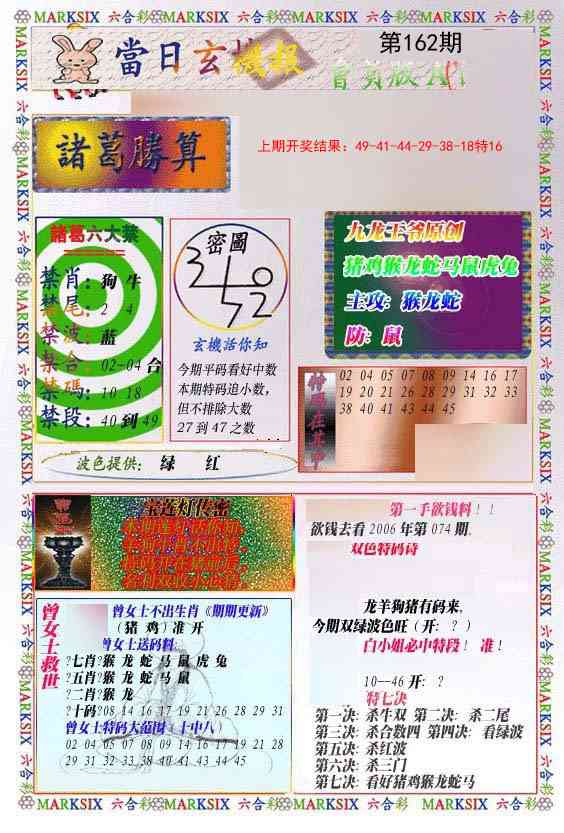 MARKSIX 六合彩 MARKSIX 六合彩 MARKSIX 六合彩 MARKSIX 六合彩
當日玄機報
第162期
諸葛勝算
上期开奖结果：49-41-44-29-38-18特16
諸葛六大禁
禁肖：狗 牛
禁尾：2 4
禁波：蓝
禁合：02-04合
禁碼：10 18
禁段：40到49
密圖
玄機活你知
今期平码看好中数
本期特码追小数，
但不排除大数
27到47之数
九龙王爷原创
猪鸡猴龙蛇马鼠虎兔
主攻：猴龙蛇
防：鼠
特码在其中
02 04 05 07 08 09 14 16 17
19 20 21 26 28 29 31 32 33
38 40 41 43 44 45
波色提供：绿 红
宝莲灯传密
曾女士救世
曾女士不出生肖《期期更新》
（猪 鸡）准 开
曾女士送码料
?七肖?猴 龙 蛇 马 鼠 虎 兔
?五肖?猴 龙 蛇 马 鼠
?二肖?猴 龙
?十码?08 14 16 17 19 21 26 28 29 31
曾女士特码大范围〔十中八〕
02 04 05 07 08 09 14 16 17 19 21 28
29 31 32 33 38 40 41 43 44 45
第一手欲钱料！！
欲钱去看2006年第074期.
双色特码诗
龙羊狗猪有码来,
今期双绿波色旺（开：？）
白小姐必中特段！ 准！
10--46 开：？
特七决
第一决：杀牛双 第二决：杀二尾
第三决：杀合数四 第四决：看绿波
第五决：杀红波
第六决：杀三门
第七决：看好猪鸡猴龙蛇马
MARKSIX 六合彩 MARKSIX 六合彩 MARKSIX 六合彩 MARKSIX 六合彩